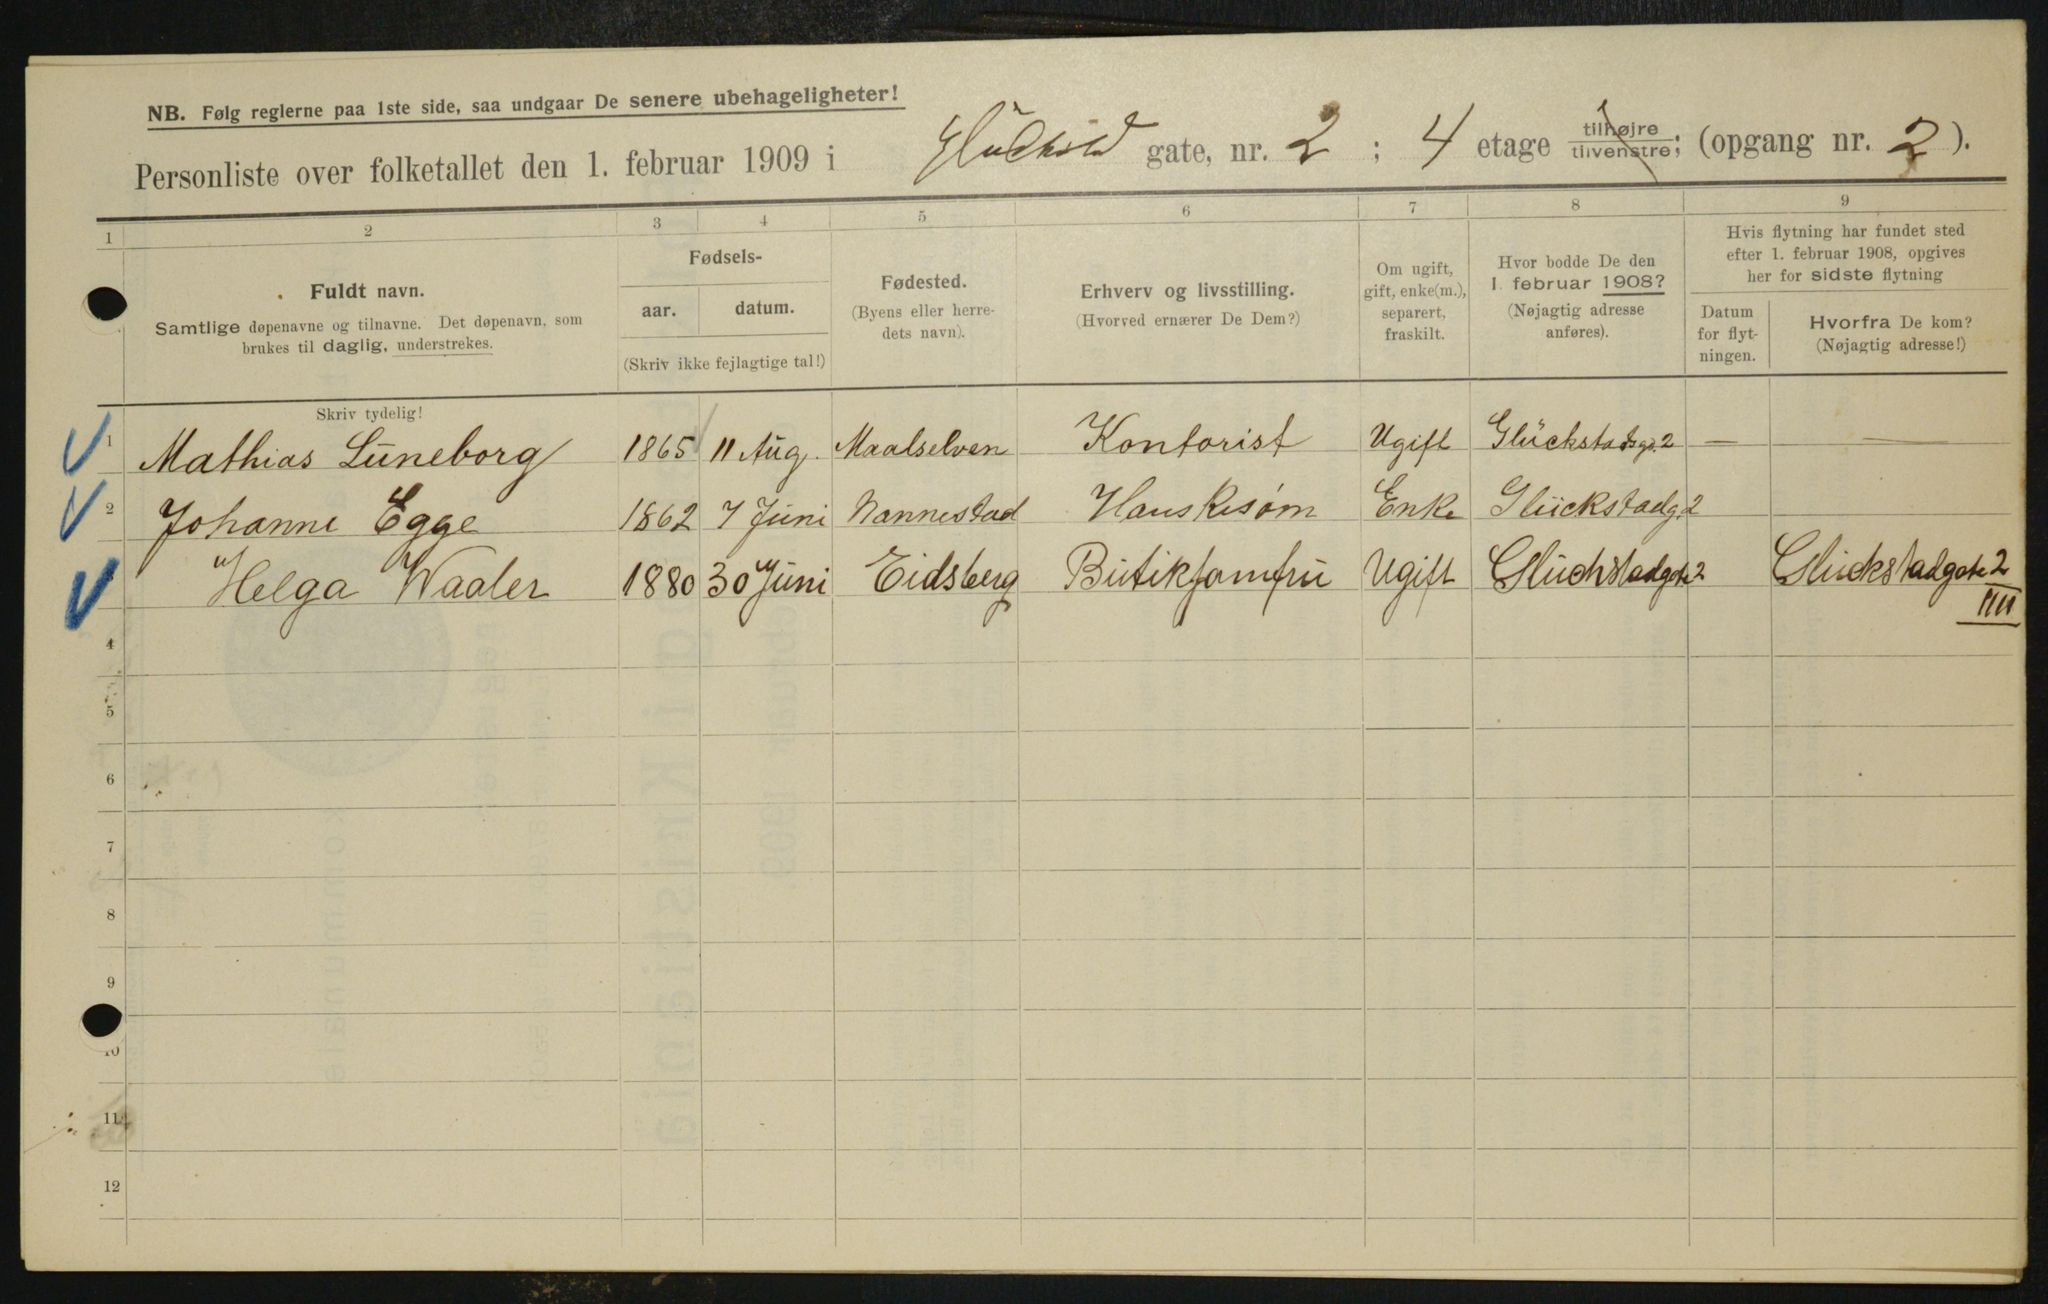 NB. Følg reglerne paa 1ste side, saa undgaar De senere ubehageligheter!
Personliste over folketallet den 1. februar 1909 i Glückstd gate, nr. 2; 4 etage tilhøjre tilvenstre; (opgang nr. 2).
1 2 3 4 5 6 7 8 9
Fuldt navn.
Samtlige døpenavne og tilnavne. Det døpenavn, som
brukes til daglig, understrekes.
Fødsels-
aar. datum.
(Skriv ikke fejlagtige tal!)
Fødested.
(Byens eller herre-
dets navn).
Erhverv og livsstilling.
(Hvorved ernærer De Dem?)
Om ugift,
gift, enke(m.),
separert,
fraskilt.
Hvor bodde De den
1. februar 1908?
(Nøjagtig adresse
anføres).
Hvis flytning har fundet sted
efter 1. februar 1908, opgives
her for sidste flytning
Datum
for flyt-
ningen.
Hvorfra De kom?
(Nøjagtig adresse!)
Skriv tydelig!
1 Mathias Lüneborg 1865 11 Aug. Maalselven Kontorist Ugift Glückstadsg. 2 — —
2 Johanne Egge 1862 7 Juni Nannestad Huskesøm Enke Glückstadg. 2
Helga Waaler 1880 30 Juni Eidsberg Butikjomfru Ugift Glückstadgate 2 Glückstadgate 2
IIII
4
5
6
7
8
9
10
11
12